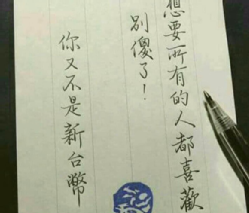 想要所有的人都喜歡
別傻了！
你又不是新台幣